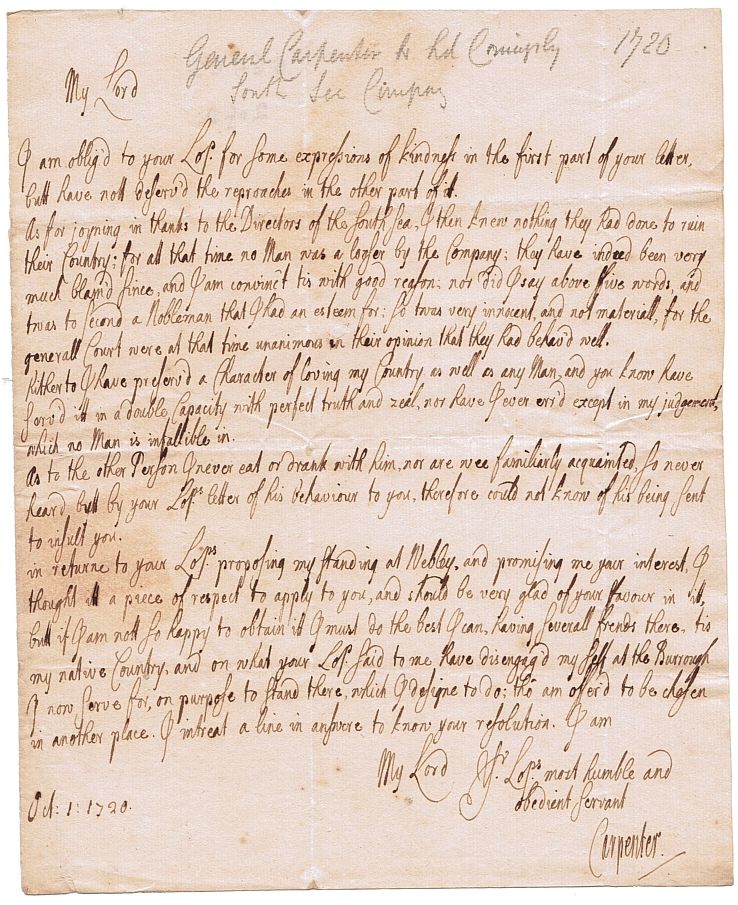 General Carpenter to Ld Coningsby 1720
South See Company
My Lord
I am oblig'd to your Lop. for some expressions of kindness in the first part of your letter,
butt have nott deserv'd the reproaches in the other part of it.
As for joyning in thanks to the Directors of the South sea, I then knew nothing they had done to ruin
their Country; for all that time no Man was a loyser by the Company; they have indeed been very
much blam'd since, and I am convinc't tis with good reason: nor did I say above five words, and
twas to second a Nobleman that I had an esteem for: so twas very innocent, and not materiall, for the
generall Court were at that time unanimous in their opinion that they had behav'd well.
hitherto I have preserv'd a Character of loving my Country as well as any Man, and you know have
serv'd itt in a double Capacity with perfect truth and zeal, nor have I ever err'd except in my judgement,
which no Man is infallible in.
As to the other Person I never eat or drank with him, nor are wee familiarly acquainted, so never
heard butt by your Lops letter of his behaviour to you, therefore could not know of his being sent
to insult you.
in returne to your Lops. proposing my standing at Webley, and promising me your interest, I
thought itt a piece of respect to apply to you, and should be very glad of your favour in itt,
butt if I am nott so happy to obtain itt I must do the best I can, having severall frends there, tis
my native Country, and on what your Lop. said to me have disengag'd my self at the Burrough
I now serve for, on purpose to stand there, which I designe to do; tho' am offer'd to be chosen
in another place. I intreat a line in answere to know your resolution. I am
My Lord Yr. Lops most humble and
obedient servant
Oct: 1: 1720.
Carpenter.